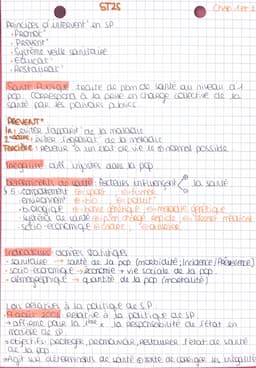 ST2S
Chap. 1 et 2
Principes d'intervent° en SP
- Promot°
- Prévent°
- Système veille sanitaire
- Educat°
- Restaurat°
Santé Publique: traite de pbm de santé au niveau d'1
pop. correspond à la prise en charge collective de la
santé par les pouvoirs publics
PREVENT°
1r: éviter l'apparit° de la maladie
2ndaire: éviter l'aggravat° de la maladie
Tertiaire: revenir à un état de vie le + normal possible
Inégalité: diff. injustes dans la pop
Déterminants de santé: facteurs influençant la santé
5 comportement sport, fumer
environnement bio, pollut°
biologique bonne génétique, maladie génétique
système de santé prise en charge rapide, désert médical
socio-économique cadre,
Indicateurs: données statistiques
- sanitaire → santé de la pop (morbidité, incidence/prévalence)
- socio-économique → économie + vie sociale de la pop.
- démographique → quantité de la pop (mortalité)
Lois relatives à la politique de S.P
9 août 2004 relative à la politique de SP
→ affirme pour la 1ère x la responsabilité de l'état en
matière de SP.
→ objectifs: protéger, promouvoir, restaurer l'état de santé
de la pop
→ Agit sur déterminants de santé et tente de corriger les inégalités